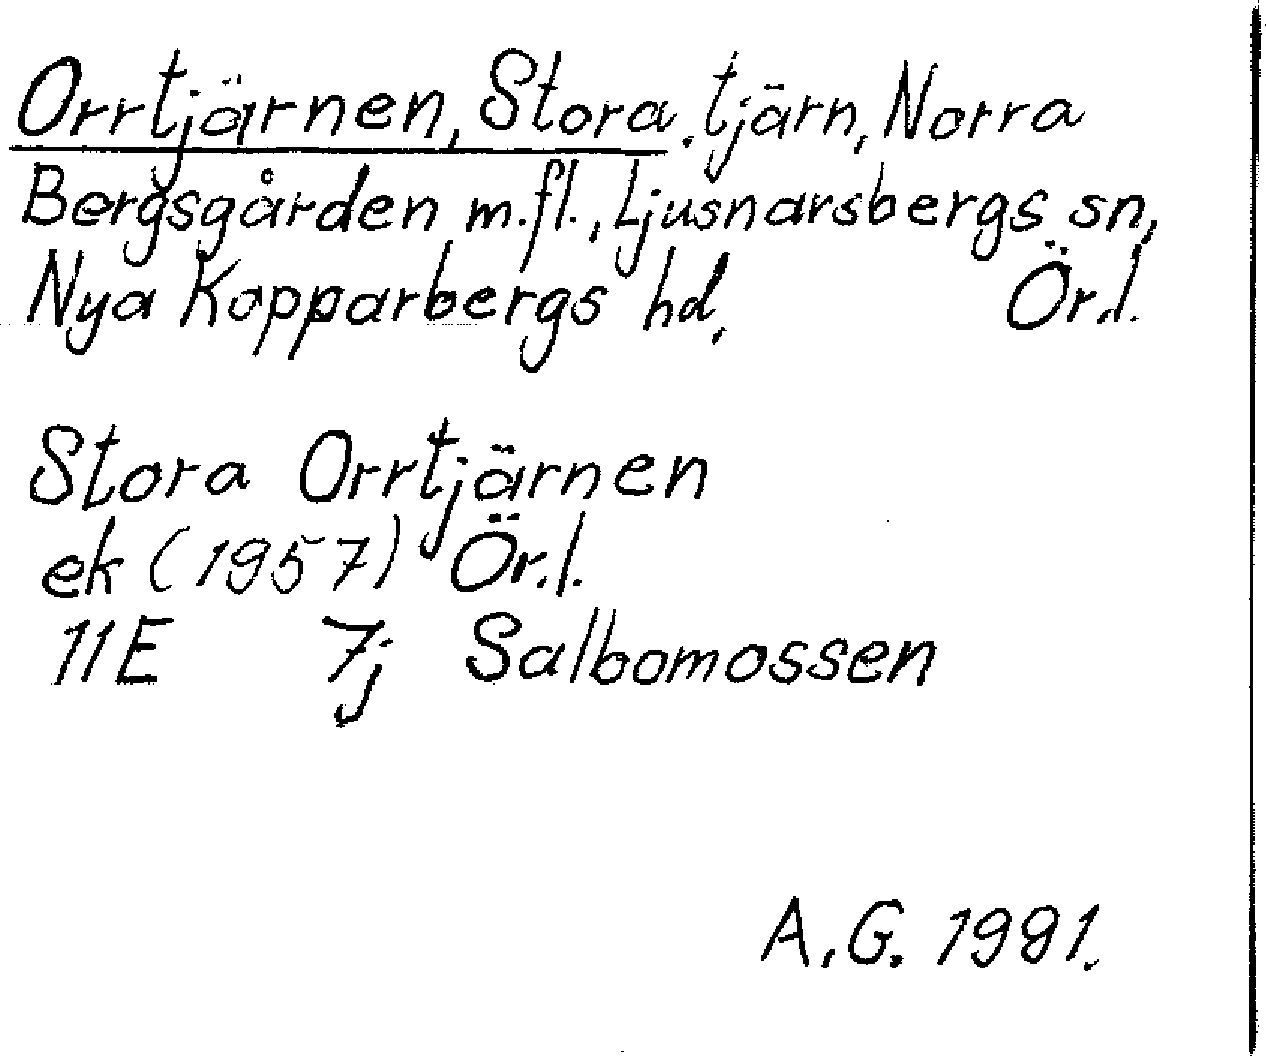 Orrtjärnen, Stora. tjärn, Norra
Bergsgården m.fl., Ljusnarsbergs sn,
Nya Kopparbergs hd, Ör.l.
Stora Orrtjärnen
ek (1957) Ör.l.
11E 7j Salbomossen
A.G. 1991.